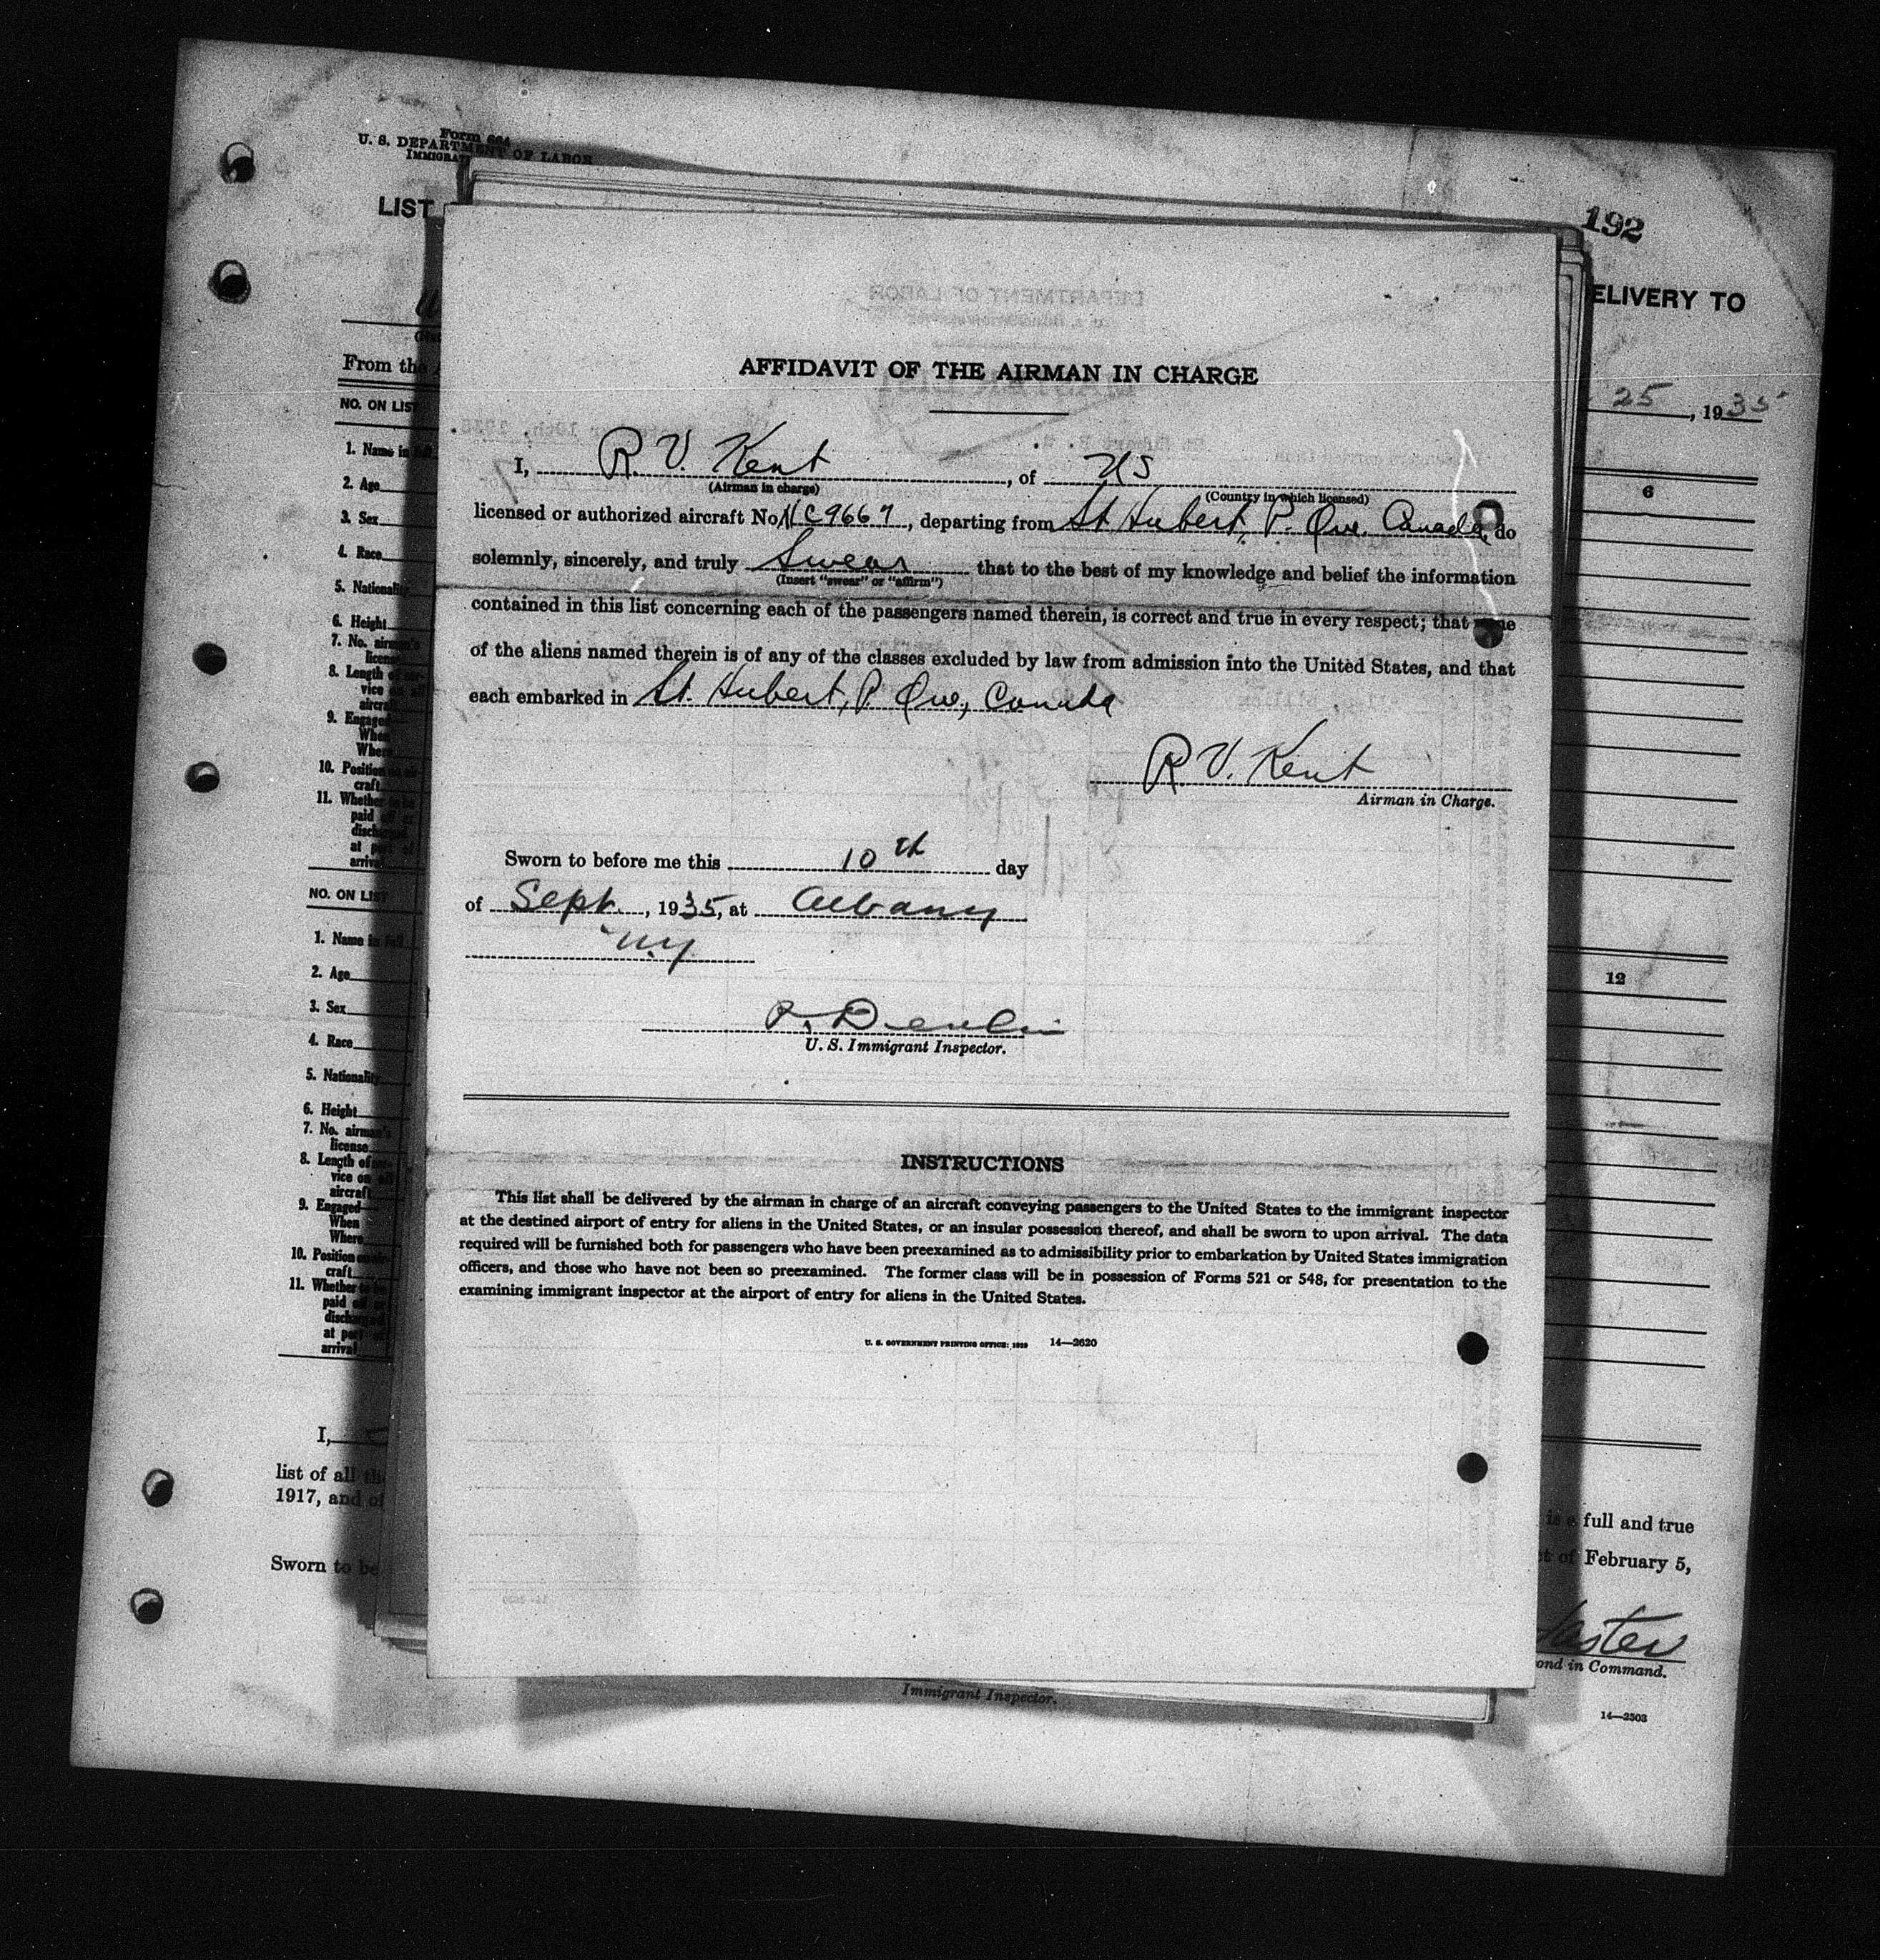 Form 664
U. S. DEPARTMENT OF LABOR
LIST
192
ELIVERY TO
From the
25, 1935
NO. ON LIST
6
1. Name in full
2. Age
3. Sex
4. Race
5. Nationality
6. Height
7. No. airman's
license
8. Length of ser-
vice on all
aircraft
9. Engaged—
When
Where
10. Position on air-
craft
11. Whether to be
paid off or
discharged
at port of
arrival
NO. ON LIST
12
1. Name in full
2. Age
3. Sex
4. Race
5. Nationality
6. Height
7. No. airman's
license
8. Length of ser-
vice on all
aircraft
9. Engaged—
When
Where
10. Position on air-
craft
11. Whether to be
paid off or
discharged
at port of
arrival
I,
list of all the
1917, and of
is a full and true
of February 5,
Sworn to be
ond in Command.
Immigrant Inspector.
14—2503
AFFIDAVIT OF THE AIRMAN IN CHARGE
I, R. V. Kent, of US
(Airman in charge) (Country in which licensed)
licensed or authorized aircraft No. NC9667, departing from St. Hubert, P. Que. Canada, do
solemnly, sincerely, and truly Swear that to the best of my knowledge and belief the information
(Insert "swear" or "affirm")
contained in this list concerning each of the passengers named therein, is correct and true in every respect; that none
of the aliens named therein is of any of the classes excluded by law from admission into the United States, and that
each embarked in St. Hubert, P. Que, Canada
R. V. Kent
Airman in Charge.
Sworn to before me this 10th day
of Sept., 1935, at Albany
N.Y.
U. S. Immigrant Inspector.
INSTRUCTIONS
This list shall be delivered by the airman in charge of an aircraft conveying passengers to the United States to the immigrant inspector
at the destined airport of entry for aliens in the United States, or an insular possession thereof, and shall be sworn to upon arrival. The data
required will be furnished both for passengers who have been preexamined as to admissibility prior to embarkation by United States immigration
officers, and those who have not been so preexamined. The former class will be in possession of Forms 521 or 548, for presentation to the
examining immigrant inspector at the airport of entry for aliens in the United States.
U. S. GOVERNMENT PRINTING OFFICE: 1929 14—2620